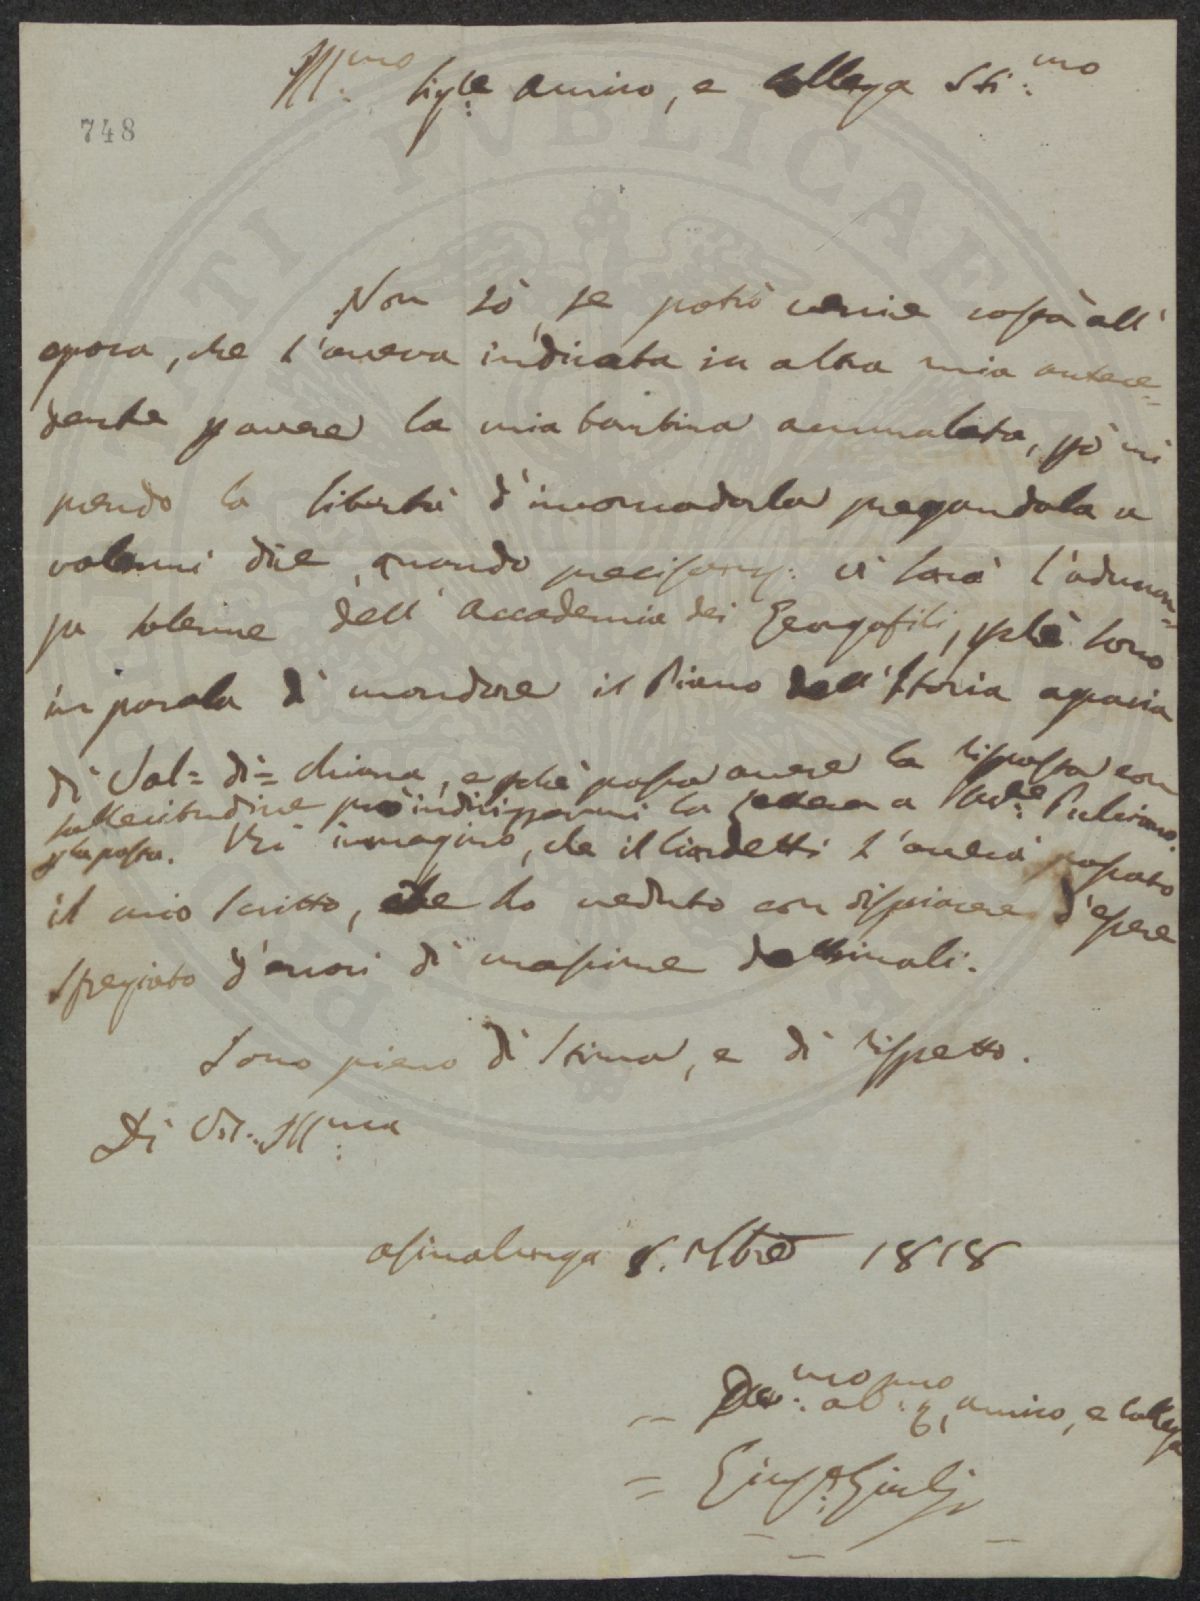 Ill:mo Sigre: Amico, e Collega Sti:mo
748
Non sò, se potrò venire costà all'
epoca, che l'aveva indicata in altra mia antece=
dente per avere la mia bambina ammalata, pò mi
prendo la libertà d'incomodarla pregandola a
volermi dire, quando precisam: vi sarà l'adunan=
za solenne dell'Accademia dei Georgofili, pchè sono
in parola di mandare il Piano dell'Istoria agraria
di Val= di= Chiana, e pchè possa avere la risposta con
sollecitudine può indirizzarmi la lettera a Pulciano
p la posta. Mi immagino, che il Giardetti l'averà passato
il mio scritto, che ho veduto con dispiacere d'essere
sfregiato d'errori di massime dottrinali.
Sono pieno di stima, e di rispetto.
Di VS: Ill:ma
Asinalunga 8. 1818
Dev:mo ob:mo amico, e Collega
Giuse: Giulj